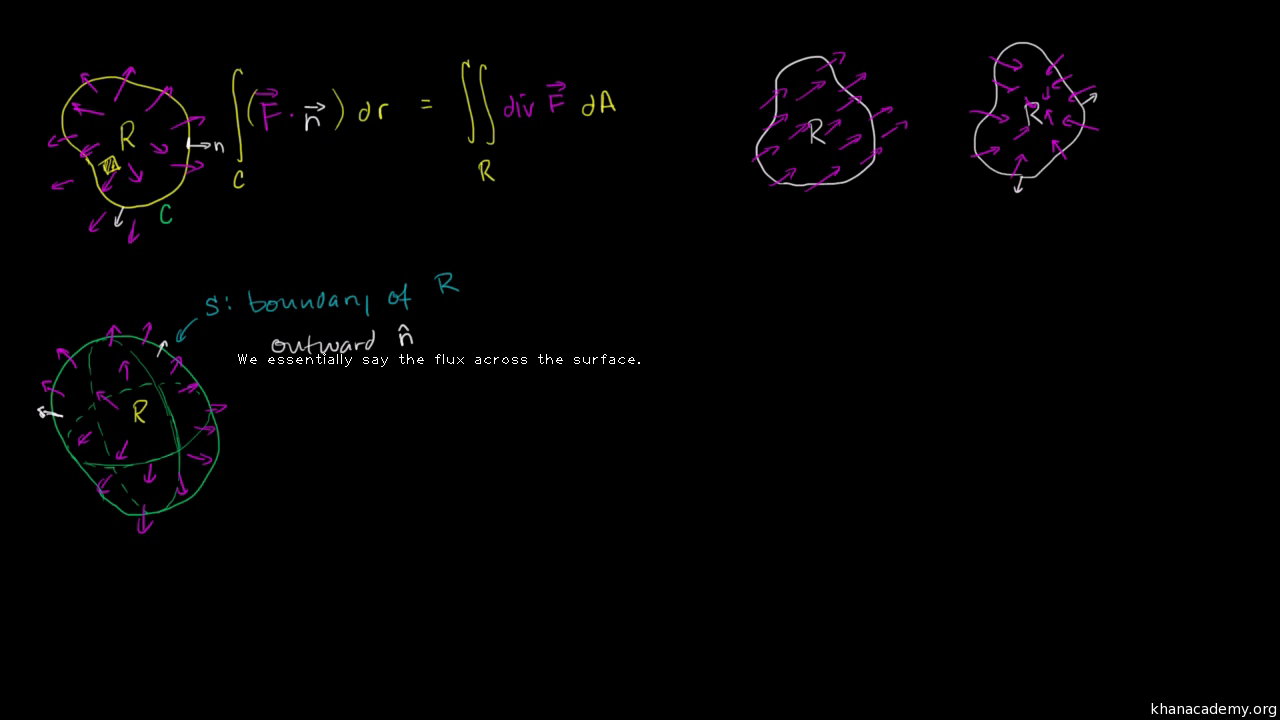 R
n
C
∫_C (F⃗ · n⃗) dr = ∬_R div F⃗ dA
R
R
S: boundary of R
outward n̂
We essentially say the flux across the surface.
R
khanacademy.org